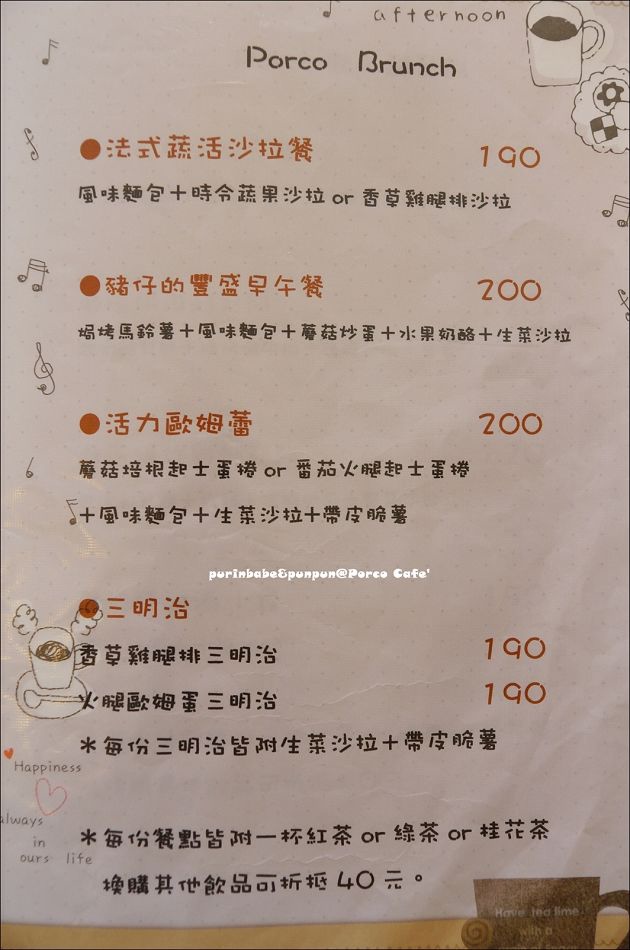 afternoon
Porco Brunch
●法式蔬活沙拉餐 190
風味麵包+時令蔬果沙拉 or 香草雞腿排沙拉
●豬仔的豐盛早午餐 200
焗烤馬鈴薯+風味麵包+蘑菇炒蛋+水果奶酪+生菜沙拉
●活力歐姆蕾 200
蘑菇培根起士蛋捲 or 番茄火腿起士蛋捲
+風味麵包+生菜沙拉+帶皮脆薯
purinbabe&punpun@Porco Cafe'
●三明治
香草雞腿排三明治 190
火腿歐姆蛋三明治 190
*每份三明治皆附生菜沙拉+帶皮脆薯
Happiness
always
in
ours life
*每份餐點皆附一杯紅茶 or 綠茶 or 桂花茶
換購其他飲品可折抵 40 元。
Have tea time
with a